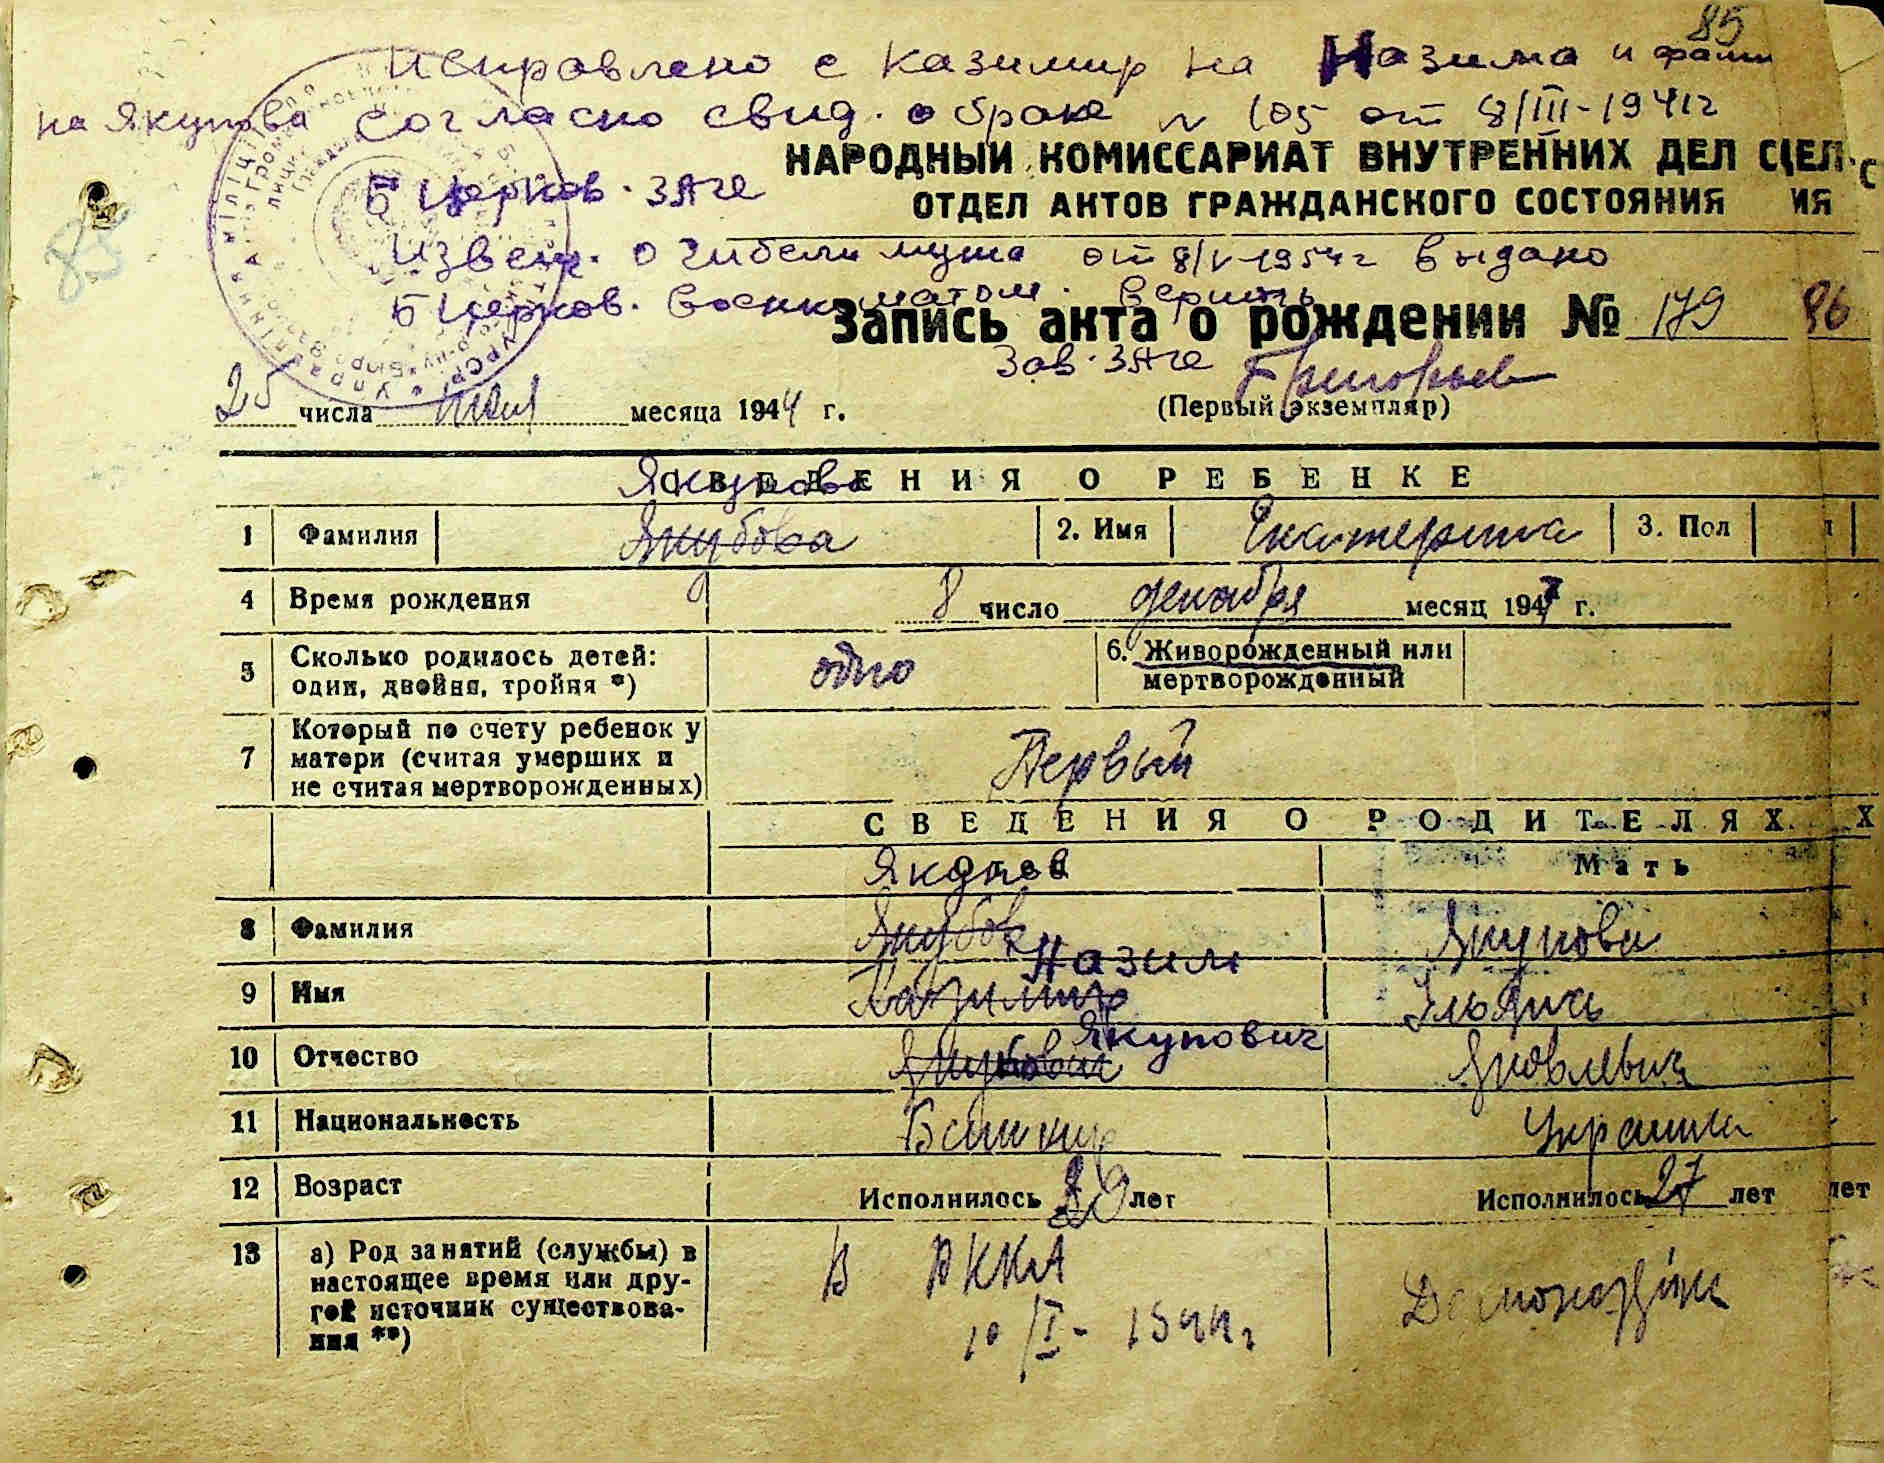 85
Исправлено с Казимир на Назима и фами
на Якупова согласно свид. о браке № 105 от 8/III-1941г
НАРОДНЫЙ КОМИССАРИАТ ВНУТРЕННИХ ДЕЛ С
Б Церков. ЗАГС
ОТДЕЛ АКТОВ ГРАЖДАНСКОГО СОСТОЯНИЯ ИЯ
Извещ. о гибели мужа от 8/V-1954г выдано
Б Церков. Военкоматом. Верить
Запись акта о рождении № 179 86
Зав. ЗАГС Григорьев
25 числа мая месяца 1944 г. (Первый экземпляр)
СВЕДЕНИЯ О РЕБЕНКЕ
Якупова
1 Фамилия Якубова 2. Имя Екатерина 3. Пол
4 Время рождения 8 число декабря месяц 194 г.
5 Сколько родилось детей: одно 6. Живорожденный или
один, двойня, тройня *) мертворожденный
7 Который по счету ребенок у
матери (считая умерших и Первый
не считая мертворожденных)
СВЕДЕНИЯ О РОДИТЕЛЯХ Х
Мать
8 Фамилия Якубов Якупова
Назим
9 Имя Казимир
Якупович
10 Отчество Яковлевич
11 Национальность Башкир Украинка
12 Возраст Исполнилось лет Исполнилось 27 лет лет
13 а) Род занятий (службы) в В РККА
настоящее время или дру-
гой источник существова- 10/I-1944г
ния **)